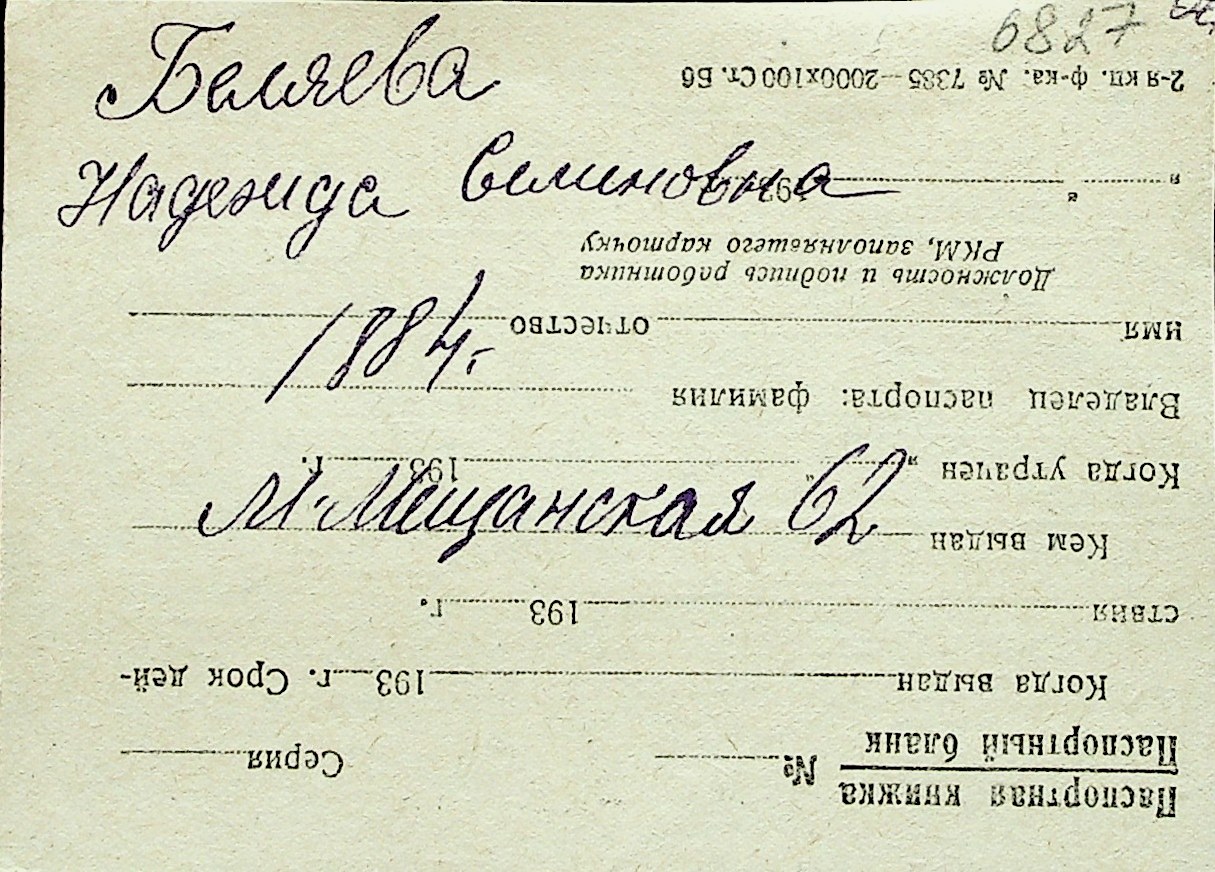 6827
Беляева
Надежда Семеновна
1884.
М-Мещанская 62
Паспортная книжка
Паспортный бланк
№ Серия
Когда выдан 193 г. Срок дей-
ствия 193 г.
Кем выдан
Когда утрачен " " 193 г.
Владелец паспорта: фамилия
имя отчество
Должность и подпись работника
РКМ, заполнявшего карточку
" " 193
2-я кп. ф-ка. № 7385—2000х100 Ст. Б6